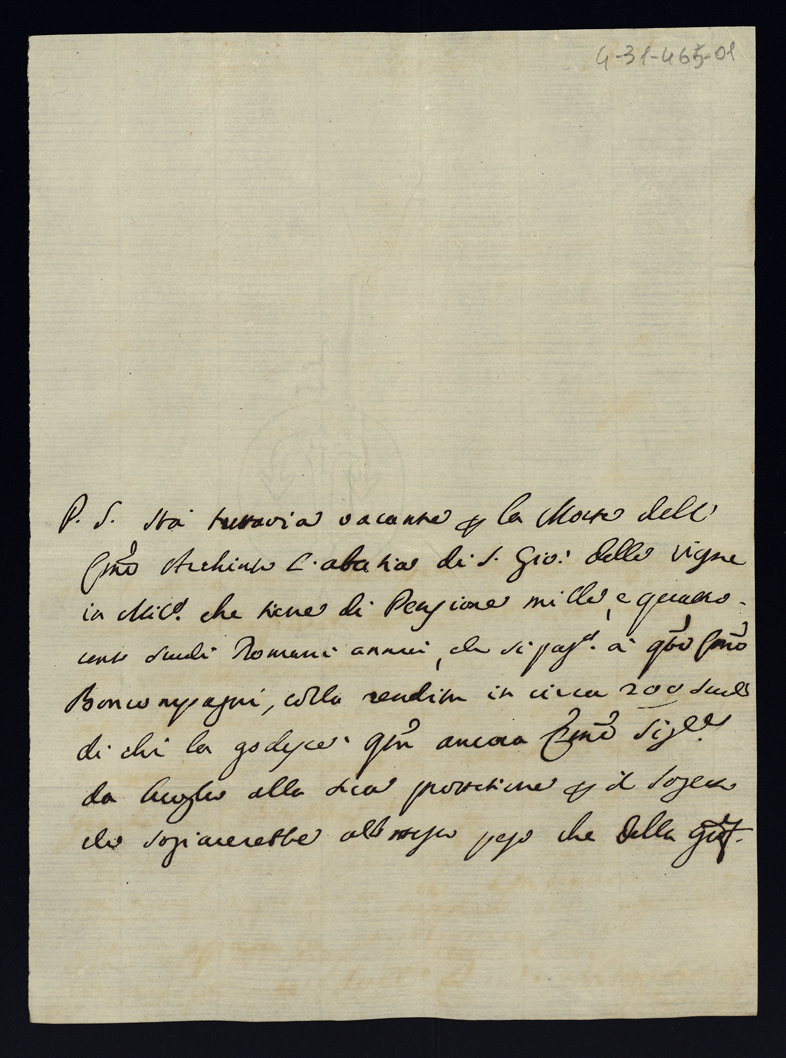 4-31-465-01
P. S. Stà tuttavia vacante p la Morte dell'
Emo Archinto l'abatia di S. Gio: delle vigne
in Mil.º che tiene di Pensione mille, e quattro-
cento Scudi Romani annui, che si pag.º ai qto Emo
Boncompagni, colla rendita in circa 200 Scudi
di chi la godesse: qto ancora Emo Sig.re
dà luogo alla sua protetione p il Sogetto
che sogiacerebbe allo stesso peso che della